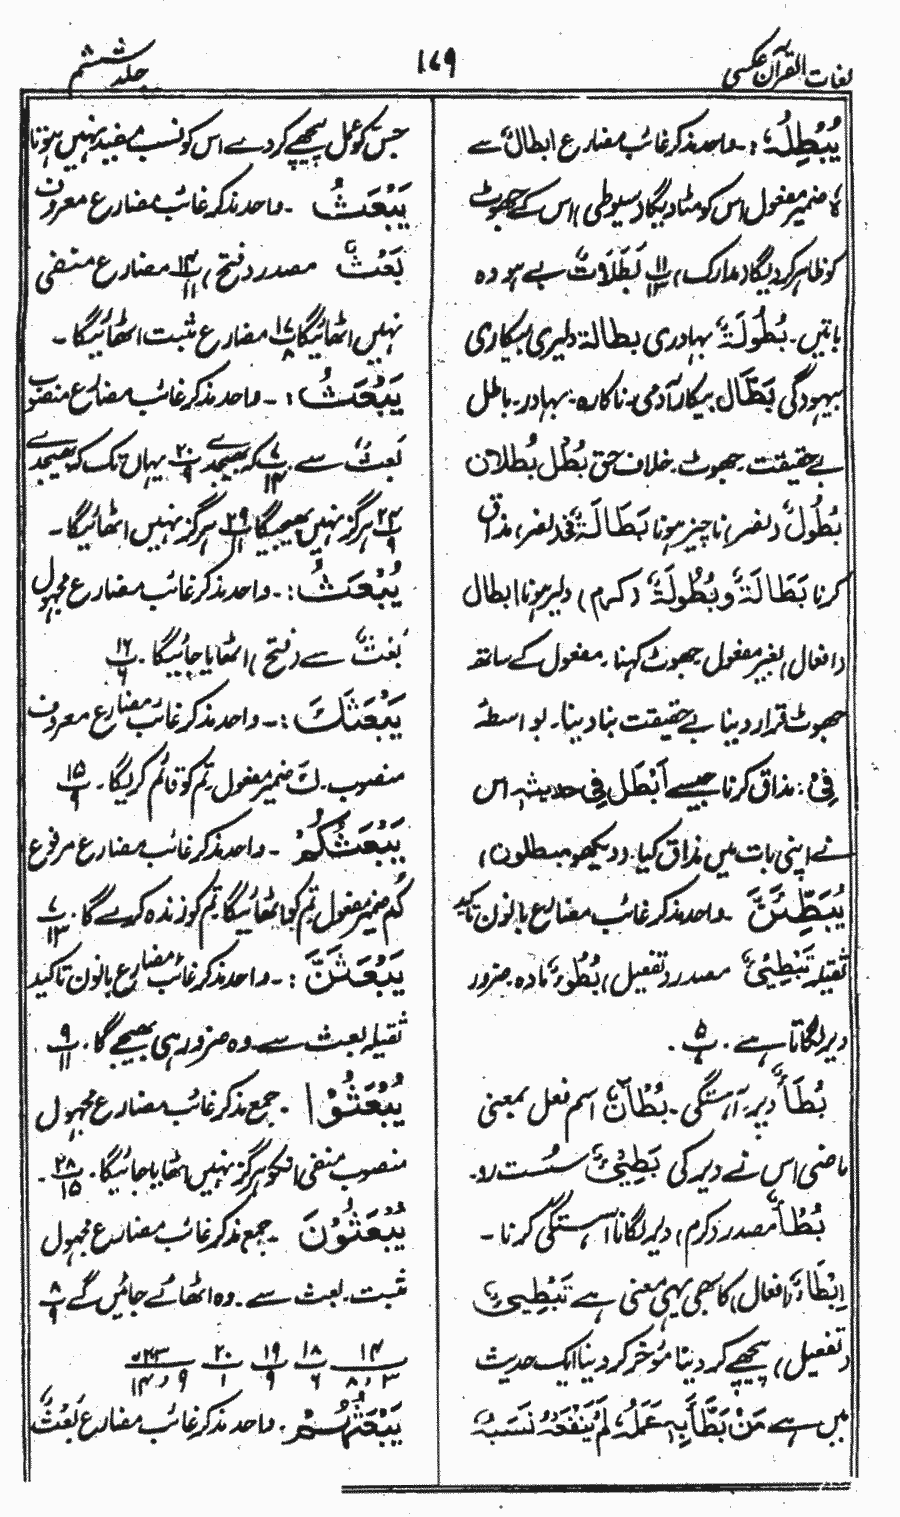 لغات القرآن عکسی
۱۷۹
جلد ششم
یُبْطِلُہٗ: واحد مذکر غائب مضارع ابطال سے
ہٗ ضمیر مفعول اس کو مٹا دیگا (سیوطی) اس کے جھوٹ
کو ظاہر کر دیگا (مدارک) ۱۱ ب ۱۳ بَطَلَاتٌ بے ہودہ
باتیں۔ بُطُولَۃٌ بہادری بطالۃ دلیری بیکاری
بیہودگی بَطَّالٌ بیکار آدمی۔ ناکارہ۔ بہادر۔ باطل
بے حقیقت۔ جھوٹ۔ خلاف حق بُطْلٌ بُطْلَانٌ
بُطُولٌ (نصر) ناچیز ہونا بَطَالَۃٌ (نصر) مذاق
کرنا بَطَالَۃٌ و بُطُولَۃٌ (کرم) دلیر ہونا ابطال
(افعال) بغیر مفعول جھوٹ کہنا۔ مفعول کے ساتھ
جھوٹ قرار دینا بے حقیقت بنا دینا۔ بواسطہ
فِیْ: مذاق کرنا جیسے اَبْطَلَ فِیْ حدیثہ اس
نے اپنی بات میں مذاق کیا۔ (دیکھو مبطلون)
یُبَطِّئَنَّ۔ واحد مذکر غائب مضارع بانون تاکید
ثقیلہ تَبْطِیْئٌ مصدر (تفعیل) بُطُوْءٌ مادہ۔ ضرور
دیر لگاتا ہے۔ ۵ ب ۶۔
بُطْأً دیر۔ آہستگی۔ بُطْاٰنَ اسم فعل بمعنی
ماضی اس نے دیر کی بَطِیْئٌ سست رو۔
بُطْأً مصدر (کرم) دیر لگانا آہستگی کرنا۔
اِبْطَاءٌ (افعال) کا بھی یہی معنی ہے تَبْطِیْئٌ
(تفعیل) پیچھے کر دینا مؤخر کر دینا ایک حدیث
میں ہے مَنْ بَطَّأَ بِہٖ عَمَلُہٗ لَمْ یَنْفَعْہُ نَسَبُہٗ
جس کو عمل پیچھے کر دے اس کو نسب مفید نہیں ہوتا
یَبْعَثُ۔ واحد مذکر غائب مضارع معروف
بَعْثٌ مصدر (فتح) ۱۴ ب ۱۱ مضارع منفی
نہیں اٹھائیگا ۱۷ ب ۸ مضارع مثبت اٹھائیگا۔
یَبْعَثَ:۔ واحد مذکر غائب مضارع منصوب
بَعْثٌ سے ۷ ب ۱۴ کہ بھیجدے ۲۰ ب ۹ یہاں تک کہ بھیجدے
۲۴ ب ۹ ہرگز نہیں بھیجیگا ۲۹ ب ۱۱ ہرگز نہیں اٹھائیگا۔
یُبْعَثُ:۔ واحد مذکر غائب مضارع مجہول
بَعْثٌ سے (فتح) اٹھایا جائیگا۔ ۱۶ ب ۶
یَبْعَثَكَ:۔ واحد مذکر غائب مضارع معروف
منصوب۔ كَ ضمیر مفعول تم کو قائم کریگا۔ ۱۵ ب ۹
یَبْعَثُكُمْ۔ واحد مذکر غائب مضارع مرفوع
كُمْ ضمیر مفعول تم کو اٹھائیگا تم کو زندہ کریگا۔ ۷ ب ۱۳
یَبْعَثَنَّ:۔ واحد مذکر غائب مضارع بانون تاکید
ثقیلہ بعث سے۔ وہ ضرور ہی بھیجے گا۔ ۹ ب ۱۱
یُبْعَثُوْا۔ جمع مذکر غائب مضارع مجہول
منصوب منفی انکو ہرگز نہیں اٹھایا جائیگا۔ ۲۸ ب ۱۵۔
یُبْعَثُوْنَ۔ جمع مذکر غائب مضارع مجہول
مثبت۔ بعث سے۔ وہ اٹھائے جائیں گے ۸ ب ۹
۱۴ ۳ و ۸ ۱۸ ۶ ۱۹ ۹ ۲۰ ۱ ۲۳ ۹ و ۱۴
یَبْعَثُہُمْ۔ واحد مذکر غائب مضارع بَعْثٌ